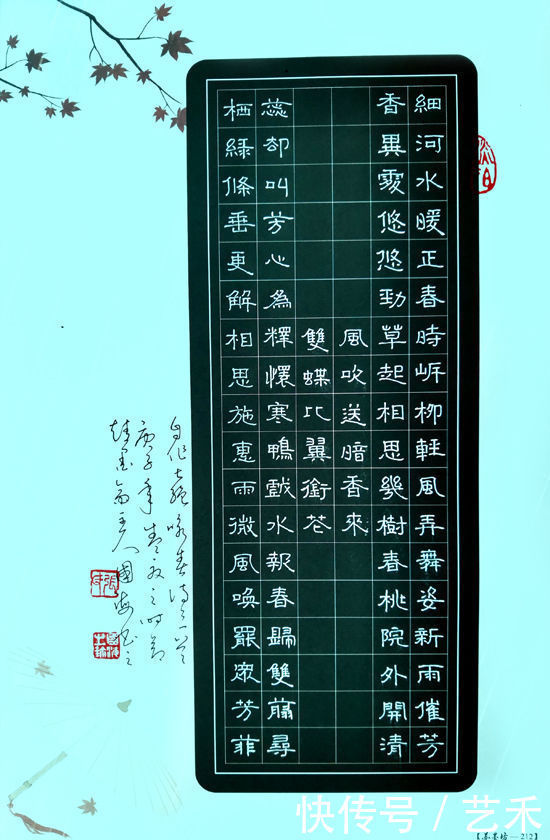 細河水暖正春時岍柳輕風弄舞姿新雨催芳
香異處悠悠勁草起相思幾樹春桃院外開清
風吹送暗香來
雙蝶比翼銜花
蕊却叫芳心為釋懷寒鴨戲水報春歸雙燕尋
栖綠條垂更解相思施惠雨微風喚罷眾芳菲
自作七绝咏春诗三首
庚子年
主人國
212
快传号 / 艺禾